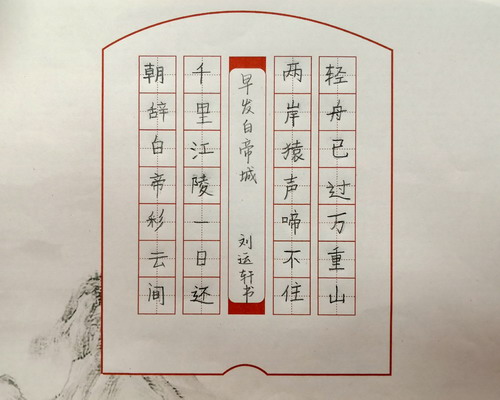 朝辞白帝彩云间
千里江陵一日还
早发白帝城
刘运轩书
两岸猿声啼不住
轻舟已过万重山